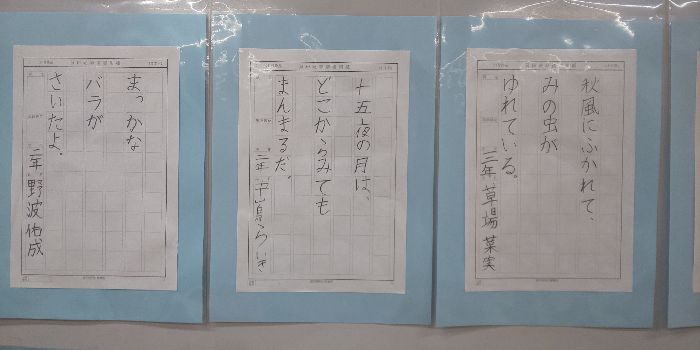 秋風にふかれて、
みの虫が
ゆれている。
三年 草場菜実
十五夜の月は、
どこからみても
まんまるだ。
二年 中島らいき
まっかな
バラが
さいたよ。
一年 野波佑成